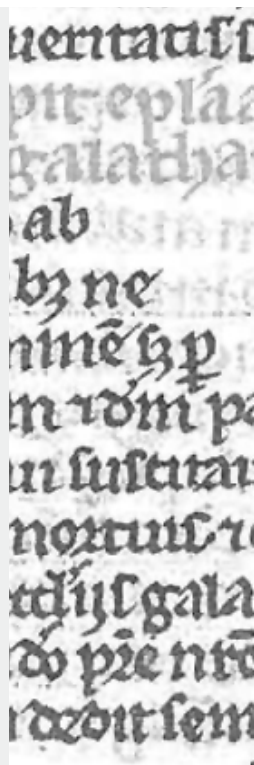 ueritatis s
pit epła a
galatha
ab
bꝫ ne
minē sꝫ ꝑ
m ⁊ dm̄ pa
ui suscitau
mortuis ⁊
ccłijs gala
do pr̄e nrō
dedit sem